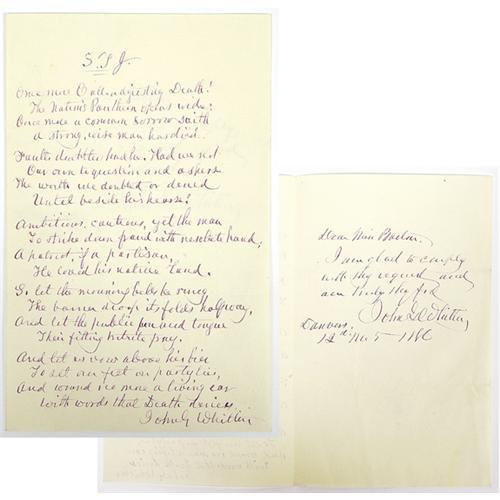 S. J. T.
Once more O all-adjusting Death!
The Nation's Pantheon opens wide;
Once more a common sorrow saith
a strong, wise man has died.
Faults doubtless had he. Had we not
Our own to question and asperse
The worth we doubted or denied
Until beside his hearse?
Ambitious, cautious, yet the man
To strike down fraud with resolute hand;
A patriot, if a partisan,
He loved his native land.
So let the mourning bells be rung
The banner droop its folds halfway,
And let the public pen and tongue
Their fitting tribute pay.
And let us vow above his bier
To set our feet on party lies,
And wound no more a living ear
With words that Death denies
John G Whittier
Dear Miss Barton
I am glad to comply
with thy request and
am truly thy frd
John G Whittier
Danvers,
1886